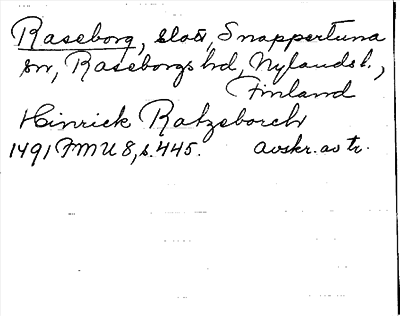 Raseborg, slott, Snappertuna
sn, Raseborgs hd, Nylands l.,
Finland
Hinrick Ratzeborch
1491 FMU 8, s. 445. avskr. av tr.